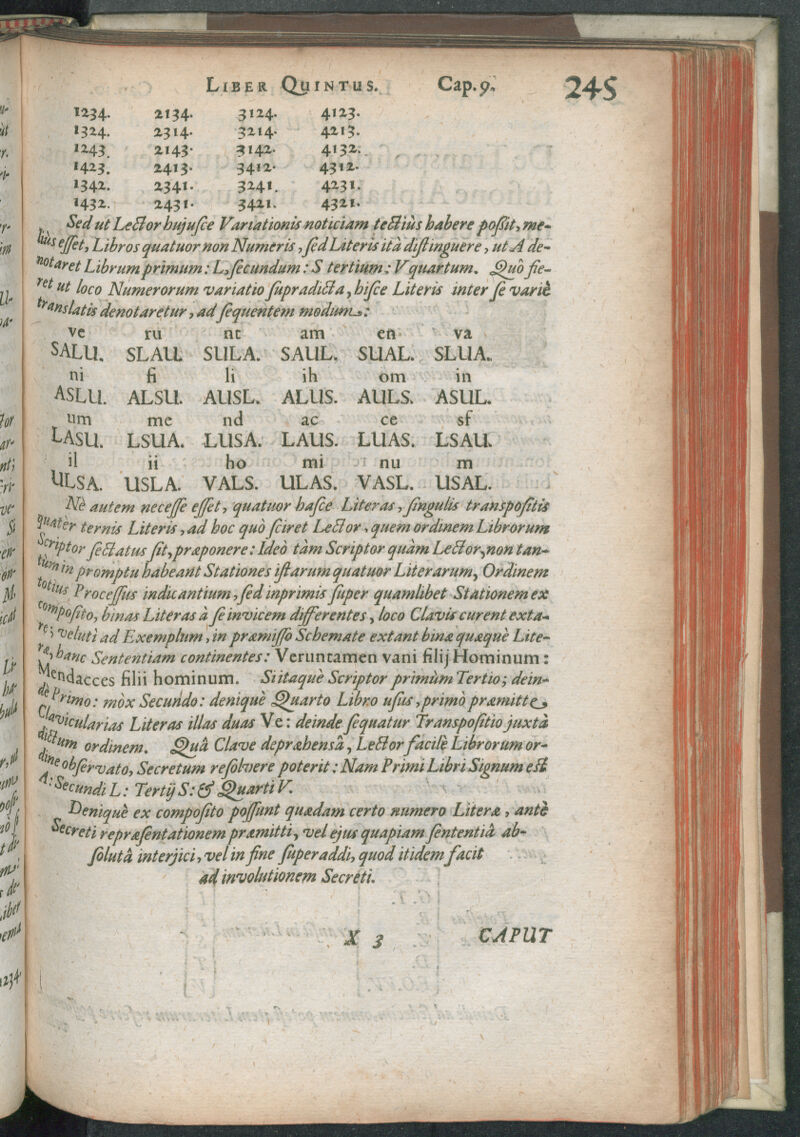 LIBER QUINTUS. Cap. 9. 245
1234. 2134. 3124. 4123.
1324. 2314. 3214. 4213.
1243. 2143. 3142. 4132.
1423. 2413. 3412. 4312.
1342. 2341. 3241. 4231.
1432. 2431. 3421. 4321.
Sed ut Lector hujusce Variationis noticiam tectiùs habere possit, me-
liùs esset, Libros quatuor non Numeris, sed Literis ità distinguere, ut A de-
notaret Librum primum: L, secundum: S tertium: V quartum. Quò fie-
ret ut loco Numerorum variatio supradicta, hisce Literis inter se variè
translatis denotaretur, ad sequentem modum:
ve ru nt am en va
SALU. SLAU. SULA. SAUL. SUAL. SLUA.
ni fi li ih om in
ASLU. ALSU. AUSL. ALUS. AULS. ASUL.
um me nd ac ce sf
LASU. LSUA. LUSA. LAUS. LUAS. LSAU.
il ii ho mi nu m
ULSA. USLA. VALS. ULAS. VASL. USAL.
Nè autem necesse esset, quatuor hasce Literas, singulis transpositis
quater ternis Literis, ad hoc quò sciret Lector, quem ordinem Librorum
Scriptor sectatus sit, præponere: Ideò tàm Scriptor quàm Lector, non tan-
tùm in promptu habeant Stationes istarum quatuor Literarum, Ordinem
totius Processus indicantium, sed inprimis super quamlibet Stationem ex
composito, binas Literas à se invicem differentes, loco Clavis curent exta-
re; veluti ad Exemplum, in præmisso Schemate extant binæ quæquè Lite-
ræ, hanc Sententiam continentes: Veruntamen vani filij Hominum:
Mendacces filii hominum. Si itaquè Scriptor primùm Tertio; dein-
dè Primo: mòx Secundo: deniquè Quarto Libro usus, primò præmitte
Clavicularias Literas illas duas Ve: deinde sequatur Transpositio juxtà
dictum ordinem. Quâ Clave depræhensâ, Lector facilè Librorum or-
dine observato, Secretum resolvere poterit: Nam Primi Libri Signum est
A: Secundi L: Tertij S: & Quarti V.
Deniquè ex composito possunt quædam certo numero Literæ, antè
Secreti repræsentationem præmitti, vel ejus quapiam sententiâ ab-
solutâ interjici, vel in fine superaddi, quod itidem facit
ad involutionem Secreti.
X 3 CAPUT